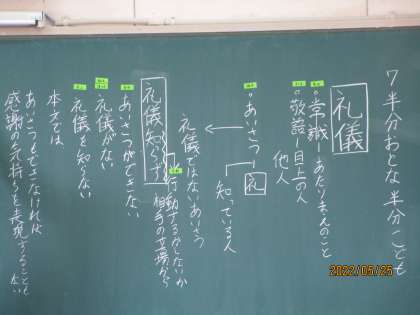 7 半分おとな 半分こども
礼儀
。常識 あたりまえのこと
。敬語 目上の人
他人
。あいさつ
礼
知っている人
礼儀ではないあいさつ
礼儀知らず
行動するかしないか
相手の立場から
。あいさつができない
礼儀がない
礼儀を知らない
本文では
あいさつもできなければ
感謝の気持ちを表現することもない
2022/05/25